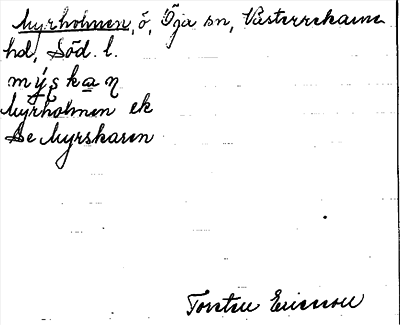 Myrholmen, ö, Öja sn, Västerrekarne
hd, Söd. l.
mýs̱ka̱ṇ
Myrholmen ek
Se Myrskaren
Torsten Ericsson